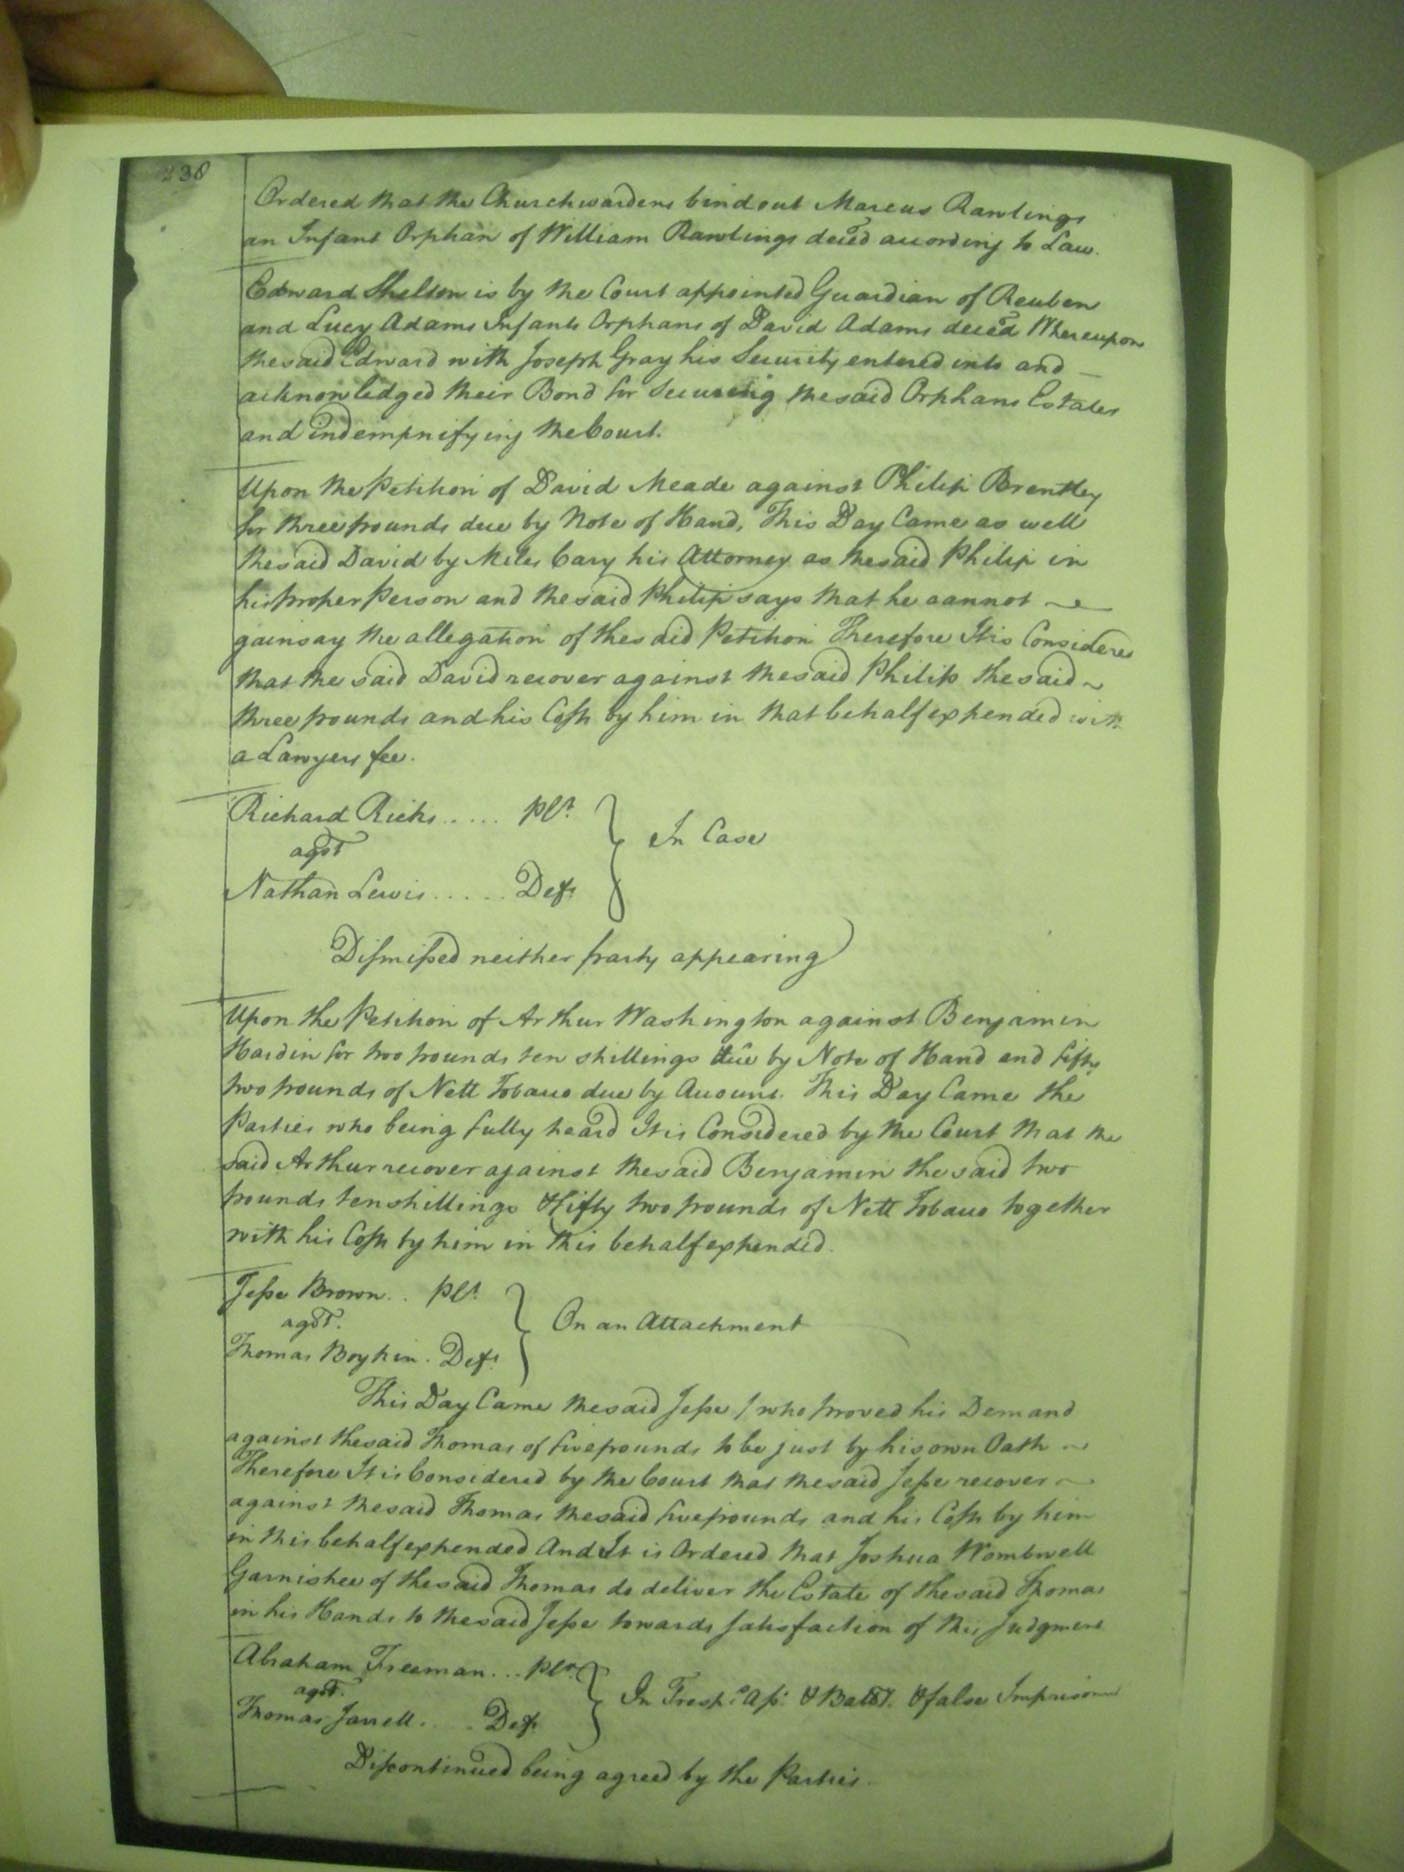 238
Ordered that the Churchwardens bind out Marcus Rawlings
an Infant Orphan of William Rawlings deced according to Law.
Edward Shelton is by the Court appointed Guardian of Reuben
and Lucy Adams Infants Orphans of David Adams deced Whereupon
the said Edward with Joseph Gray his Security entered into and
acknowledged their Bond for securing the said Orphans Estates
and indempnifying the Court.
Upon the Petition of David Meade against Philip Brantley
for three pounds due by Note of Hand, This Day Came as well
the said David by Miles Cary his Attorney as the said Philip in
his proper Person and the said Philip says that he cannot
gainsay the allegation of the said Petition Therefore It is Considered
that the said David recover against the said Philip the said
three pounds and his Costs by him in that behalf expended with
a Lawyers fee.
Richard Ricks ..... Plt.
agst
Nathan Lewis ..... Deft.
In Case
Dismissed neither party appearing
Upon the Petition of Arthur Washington against Benjamin
Hardin for two pounds ten shillings due by Note of Hand and fifty
two pounds of Nett Tobacco due by Account. This Day Came the
Parties who being fully heard It is Considered by the Court that the
said Arthur recover against the said Benjamin the said two
pounds ten shillings & fifty two pounds of Nett Tobacco together
with his Costs by him in this behalf expended.
Jesse Brown .. Plt.
agst.
Thomas Boykin . Deft.
On an Attachment
This Day Came the said Jesse / who proved his Demand
against the said Thomas of five pounds to be just by his own Oath
Therefore It is Considered by the Court that the said Jesse recover
against the said Thomas the said five pounds and his Costs by him
in this behalf expended And It is Ordered that Joshua Wombwell
Garnishee of the said Thomas do deliver the Estate of the said Thomas
in his Hands to the said Jesse towards satisfaction of this Judgment
Abraham Freeman ... Plt.
agst.
Thomas Jarrell .... Deft.
In Tresps. Ass. & Batty. & false Imprisonm
Discontinued being agreed by the Parties.